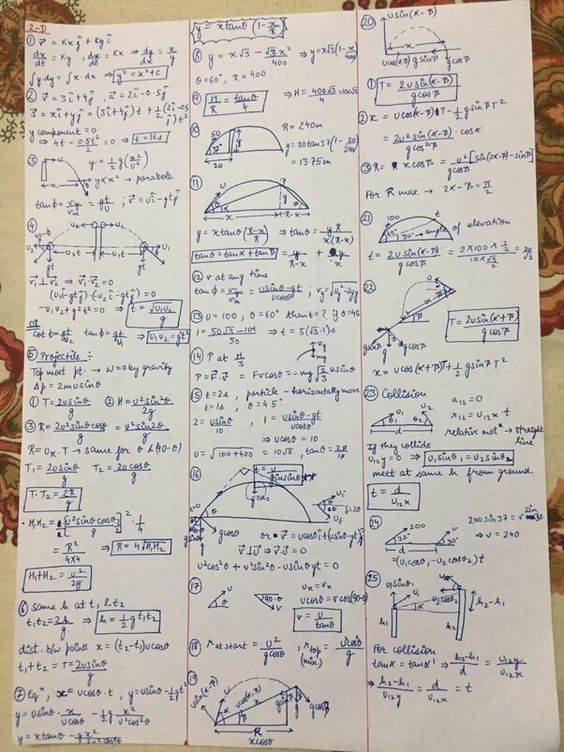 2-D
① v⃗ = Kxĵ + Kyî
dx/dt = Ky , dy/dt = Kx ⇒ dy/dx = x/y
∫y dy = ∫x dx ⇒ y² = x² + c
② v⃗ = 3î + 4ĵ , a⃗ = 2î - 0.5ĵ
s⃗ = xî + yĵ = (3î + 4ĵ) t + 1/2 (2î - 0.5ĵ) t²
y component = 0
⇒ 4t - 0.5t²/2 = 0 ⇒ t = 16s
③ y = 1/2 g (x²/u²)
y ∝ x² → parabola
tanϕ = vy/vx = gt/u ; v⃗ = uî - gtĵ
④
v₂ u₁
u₂t u₁t
gt gt
v⃗₁ ⊥ v⃗₂ ⇒ v⃗₁·v⃗₂ = 0
(u₁î - gtĵ)·(-u₂î - gtĵ) = 0
-u₁u₂ + g²t² = 0 ⇒ t = √u₁u₂/g
or
cotϕ = gt/u₂ tanϕ = gt/u₁ ⇒ u₁u₂ = gt²
⑤ Projectile :-
Top most pt. → W = 0 by gravity
Δp = 2mu sinθ
① T = 2u sinθ/g ② H = u² sin²θ/2g
③ R = 2u² sinθ cosθ/g = u² sin2θ/g
R = Ux · T → same for θ & (90-θ)
T₁ = 2u sinθ/g T₂ = 2u cosθ/g
T·T₂ = 2R/g
• H₁H₂ = [u² sinθ cosθ/g]² · 1/4
= R²/4×4 ⇒ R = 4√H₁H₂
H₁ + H₂ = u²/2g
⑥ same h at t₁ & t₂
t₁t₂ = 2h/g ⇒ h = 1/2 g t₁t₂
dist. b/w points x = (t₂-t₁) u cosθ
t₁ + t₂ = T = 2u sinθ/g
⑦ Eqⁿ, x = u cosθ · t , y = u sinθ - 1/2 gt²
y = u sinθ · x/u cosθ - 1/2 g x²/u² cos²θ
y = x tanθ - gx²/2u² cos²θ
y = x tanθ (1 - x/R)
⑧ y = x√3 - √3x²/400 ⇒ y = x√3 (1 - x/400)
θ = 60°, R = 400
⑨ H/R = tanθ/4 ⇒ H = 400√3/4 = 100√3
⑩ R = 240m
y = 20 tan37 (1 - 20/240)
= 13.75 m
20
⑪
y = x tanθ (R-x/R) ⇒ tanθ = yR/x(R-x)
tanθ = tanα + tanβ = y/R-x + y/x
⑫ v at any time
tanϕ = vy/vx = u sinθ - gt/u cosθ , vy = √uy² - 2gy
⑬ u = 100, θ = 60° then t = ? if θ = 45
1 = 50√3 - 10t/50 ⇒ t = 5(√3 - 1)s
⑭ P at H/3
P = F⃗·v⃗ = Fv cosθ = -mg √2/3 u sinθ
⑮ t = 2s, particle → horizontally move
t = 1s, θ = 45°
2 = u sinθ/10 , 1 = u sinθ - gt/u cosθ
⇒ u cosθ = 10
u = √100 + 400 = 10√5 , tanθ = 20/10
⑯
or v⃗ = u cosθî + (u sinθ - gt)ĵ
v⃗ ⊥ u⃗ ⇒ v⃗·u⃗ = 0
u² cos²θ + u² sin²θ - u sinθ gt = 0
⑰ ux = vx
u cosθ = v cos(90-θ)
v = u/tanθ
⑱ r at start = u²/g cosθ , r top (min) =
⑲
R
x cosθ
⑳ u sin(α-β)
u cos(α-β) g sinβ g cosβ
① T = 2u sin(α-β)/g cosβ
② x = u cos(α-β)T - 1/2 g sinβ T²
= 2u² sin(α-β)/g cos²β · cosα
③ R = x cosβ = u²/g cosβ [sin(2α-β) - sinβ]
For R max. → 2α - β = π/2
㉑ 100 t
60° 30° → angle of elevation
t = 2u sin(α-β)/g cosβ = 2×100×1/2/10×√3/2 = 20/√3
㉒
T = 2u sin(α+β)/g cosβ
x = u cos(α+β)T + 1/2 g sinβ T²
㉓ Collision
a₁₂ = 0
r₁₂ = u₁₂ x t
relative motⁿ → straight line
If they collide
u₁₂y = 0 ⇒ u₁ sinθ₁ = u₂ sinθ₂
meet at same h from ground.
t = d/u₁₂x
㉔ 200 v
37° 30°
d
200 sin37 = v sin30
⇒ v = 240
= (u₁ cosθ₁ - u₂ cosθ₂) t
㉕
h₂ - h₁
h₁
For collision
tanα = tanα' ⇒ h₂-h₁/d = u₁₂y/u₁₂x
⇒ h₂-h₁/u₁₂y = d/u₁₂x = t